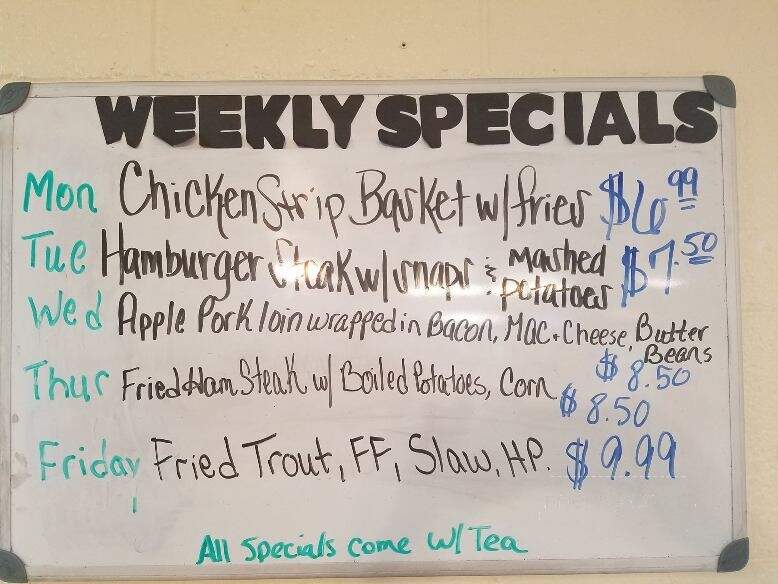 WEEKLY SPECIALS
Mon Chicken Strip Basket w/fries $6 99
Tue Hamburger Steak w/snaps & Mashed potatoes $7.50
Wed Apple Pork loin wrapped in Bacon, Mac + Cheese, Butter Beans
$8.50
Thur Fried Ham Steak w/ Boiled Potatoes, Corn
$8.50
Friday Fried Trout, FF, Slaw, HP. $9.99
All Specials come w/ Tea